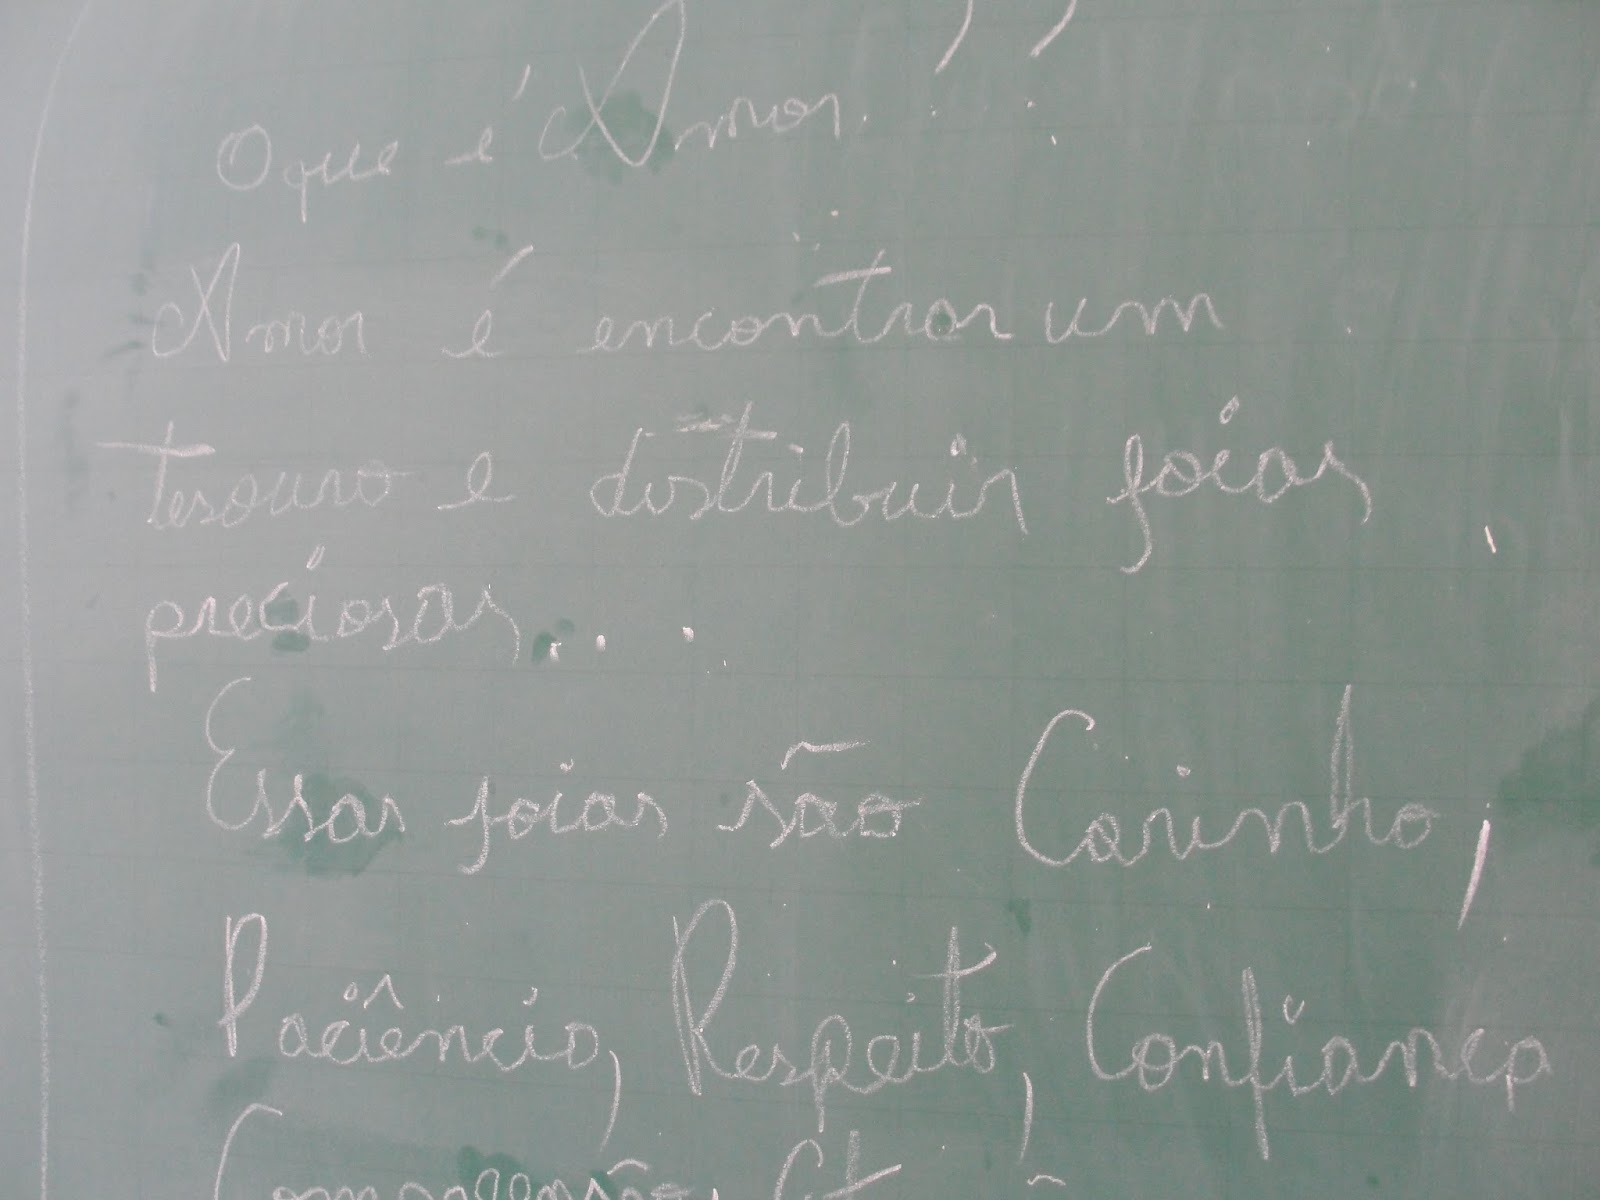 O que é Amor..??
Amor é encontrar um
tesouro e distribuir joias
preciosas...
Essas joias são Carinho,
Paciência, Respeito, Confiança
Compreensão,